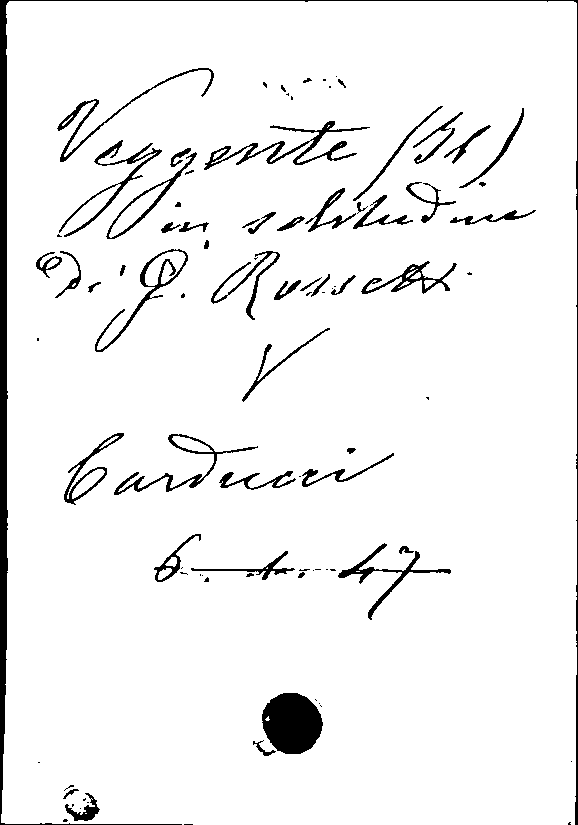 Veggente (Il)
in solitudine
di G. Rossetti
V
Carducci
6. 1. 47